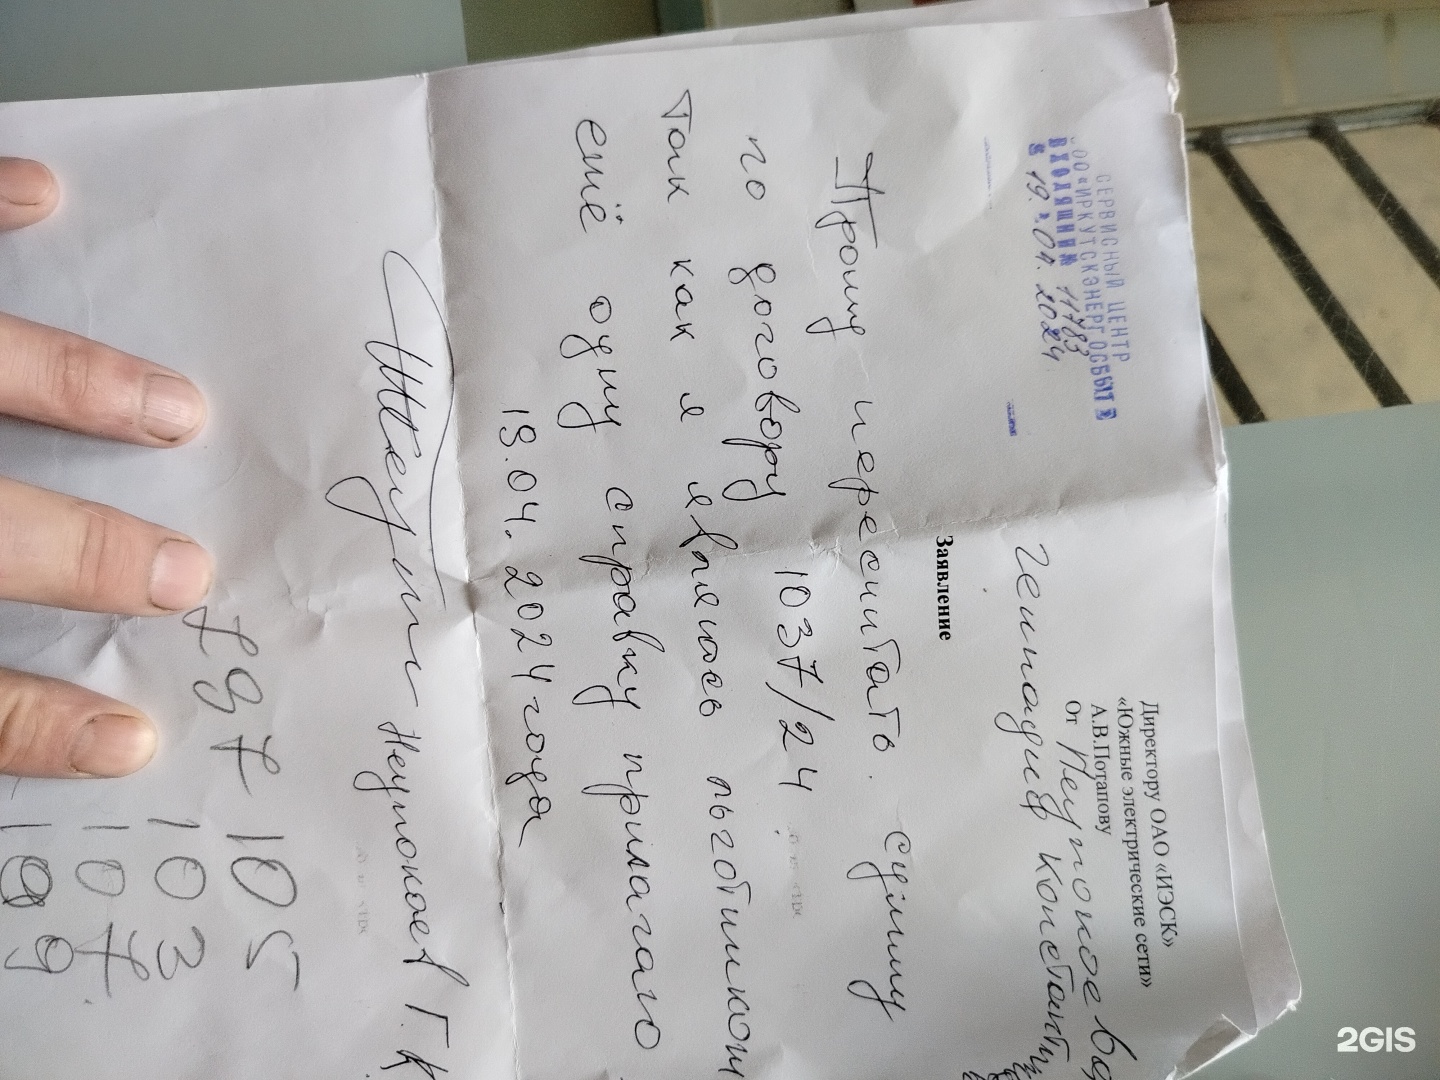 Директору ОАО «ИЭСК»
«Южные электрические сети»
А.В.Потапову
От Неупокоева
Геннадия Констант
СЕРВИСНЫЙ ЦЕНТР
ООО «ИРКУТСКЭНЕРГОСБЫТ»
ВХОДЯЩИЙ № 11783
« 19 » 04. 2024
Заявление
Прошу пересчитать сумму
по договору 1037/24
Так как я являюсь льготником
ещё одну справку прилагаю
19.04.2024 года
Неупокоев Г.К
105
103
107
109
2GIS